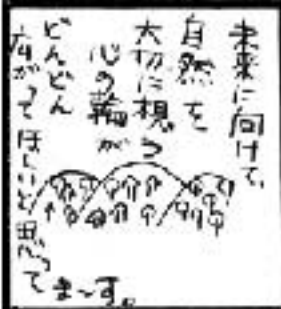 未来に向けて、
自然を
大切に想う
心の輪が
どんどん
広がってほしいと思って
ま〜す。